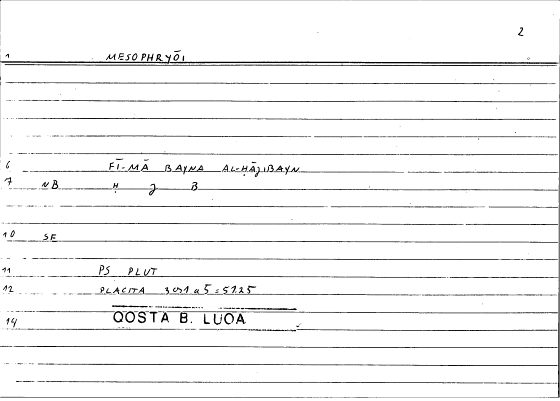 2
1 MESOPHRYŌI
6 FĪ-MĀ BAYNA AL-ḤĀǧIBAYN
7 NB Ḥ ǧ B
10 SE
11 PS PLUT
12 PLACITA
14 QOSTA B. LUQA